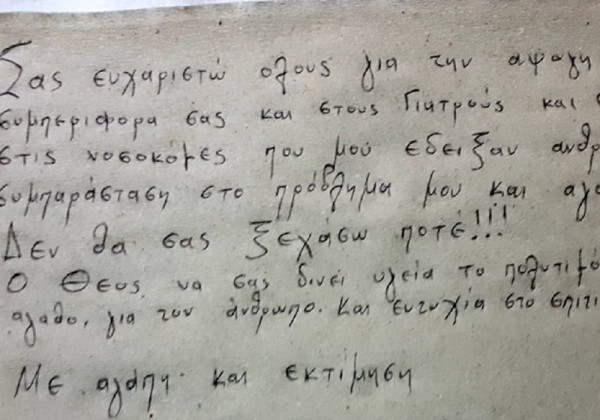 Σας ευχαριστώ ολους για την αψαγη
συμπεριφορα σας και στους Γιατρούς και
στις νοσοκόμες που μού εδειξαν ανθρ
συμπαράσταση στο πρόβλημα μου και αγα
Δεν θα σας ξεχάσω ποτέ!!!
Ο Θεος να σας δινει υγεία το πολυτιμό
αγαθο, για τον άνθρωπο. Και ευτυχία στο σπιτι
Με αγάπη και εκτίμηση